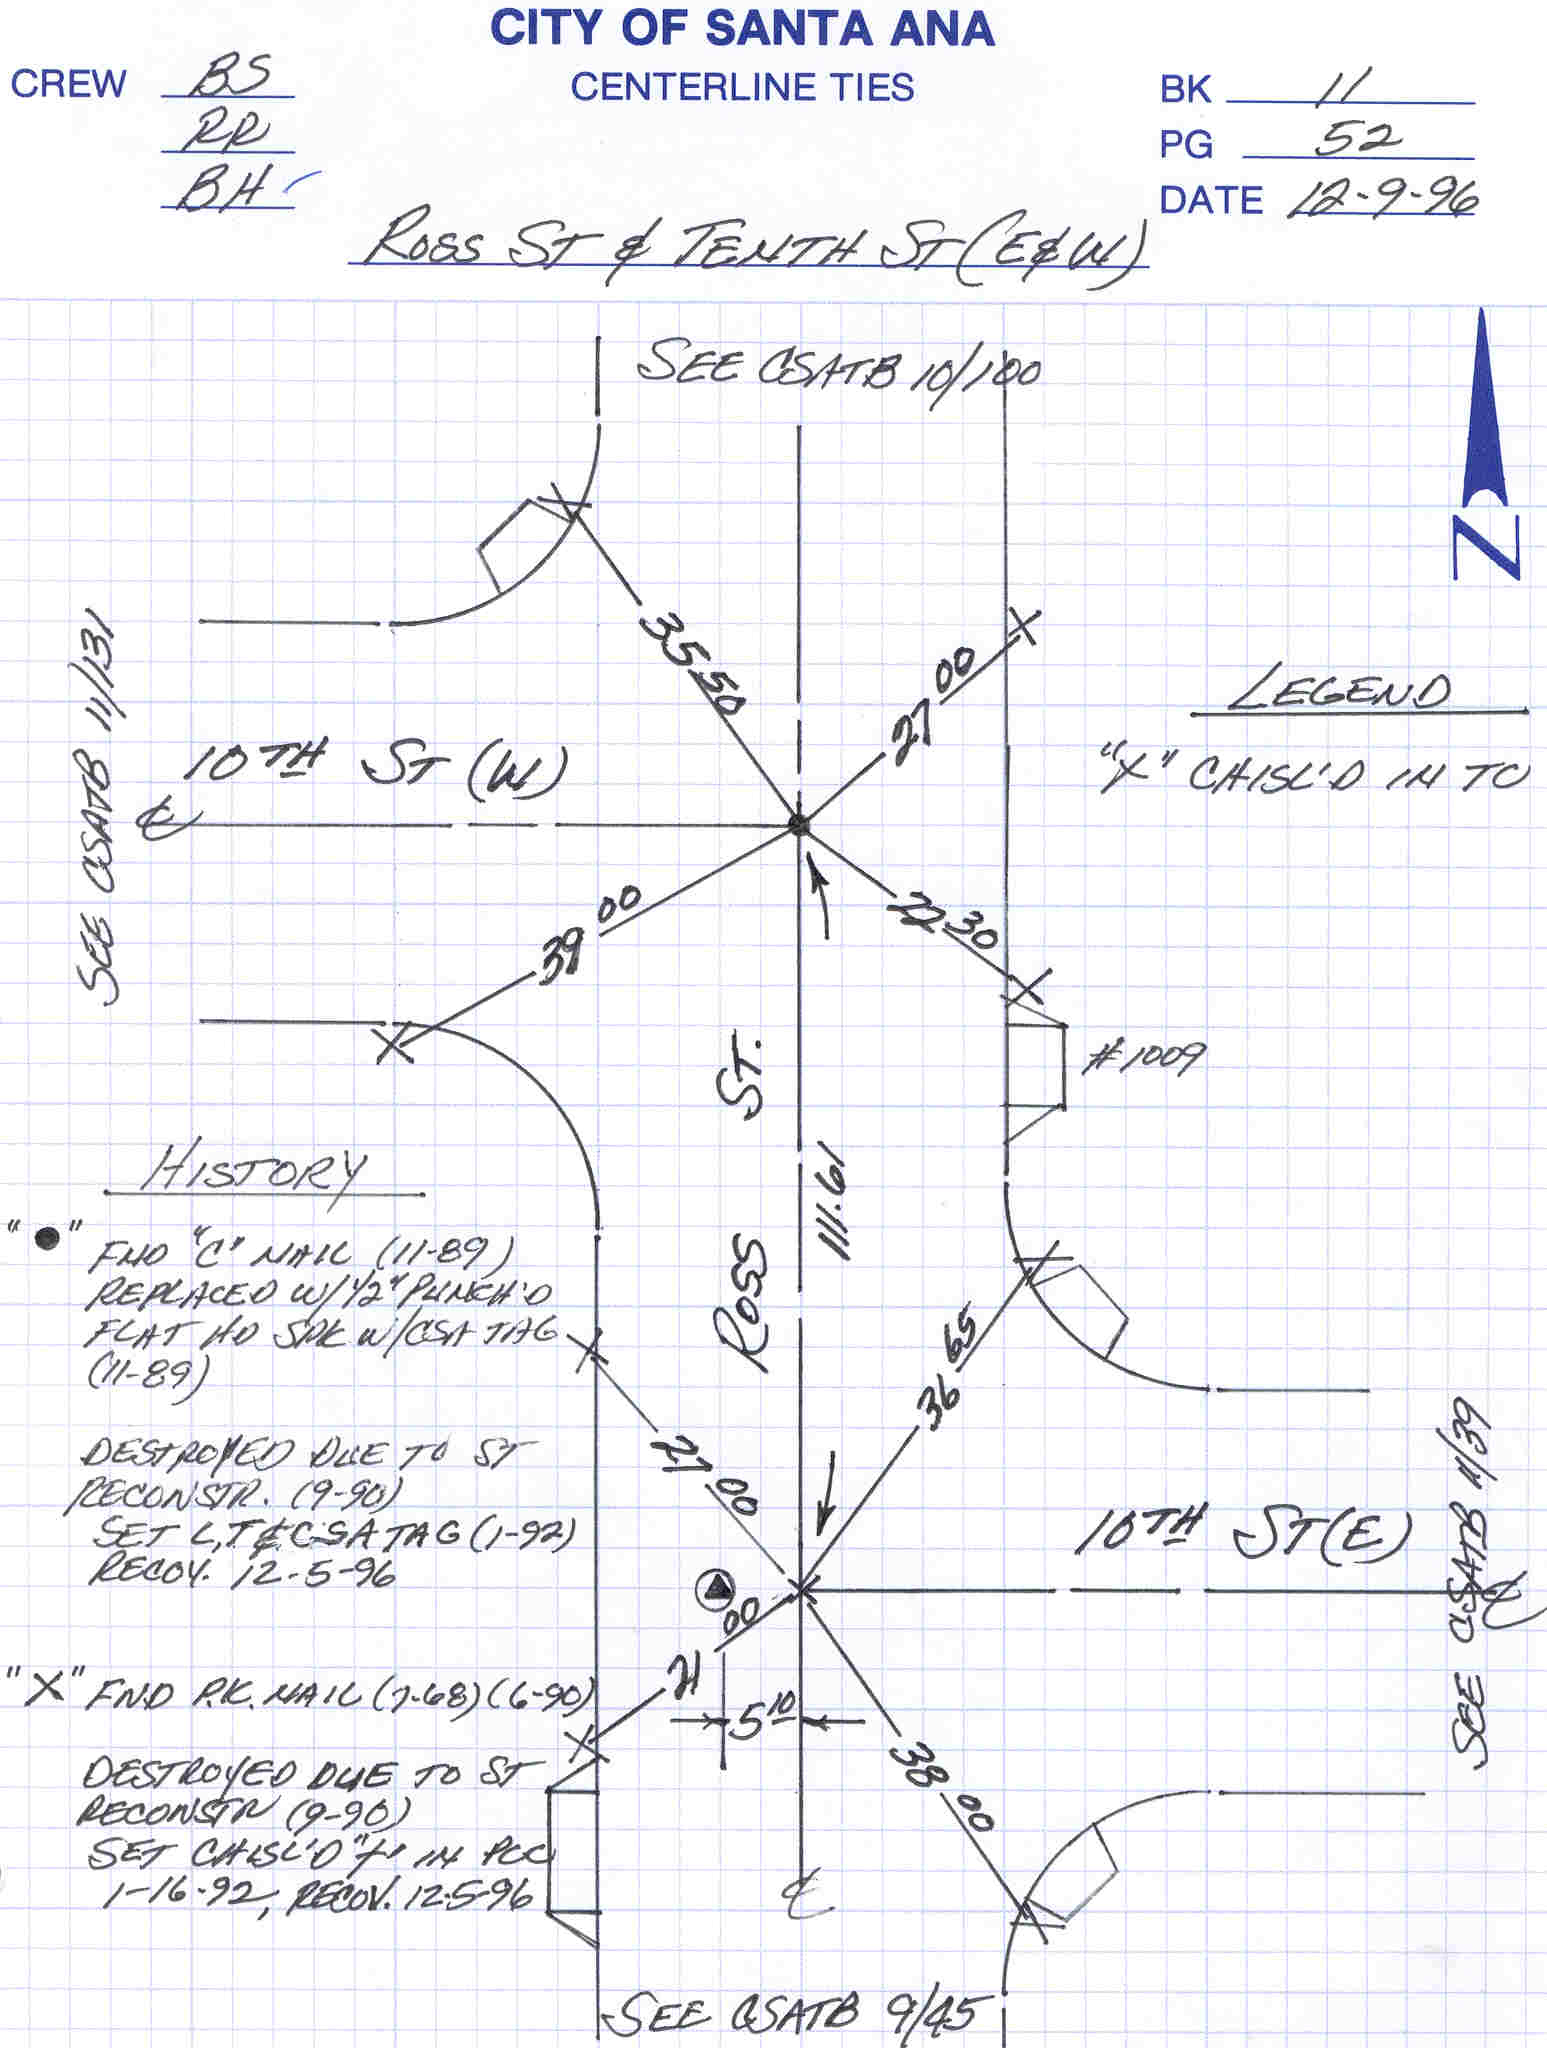 CITY OF SANTA ANA
CENTERLINE TIES
CREW BS
RR
BH
BK 11
PG 52
DATE 12-9-96
ROSS ST & TENTH ST (E&W)
SEE CSATB 10/100
N
35.50
27.00
SEE CSATB 11/131
10TH ST (W)
LEGEND
"X" CHISL'D IN TC
39.00
22.30
ROSS ST.
#1009
111.61
HISTORY
"●" FND "C" NAIL (11-89)
REPLACED W/ 1/2" PUNCH'D
FLAT HD SPK W/CSA TAG
(11-89)
DESTROYED DUE TO ST
RECONSTR. (9-90)
SET L,T & CSA TAG (1-92)
RECOV. 12-5-96
27.00
36.65
10TH ST (E)
SEE CSATB 11/39
"X" FND P.K. NAIL (7-68) (6-90)
21.00
5.10
38.00
DESTROYED DUE TO ST
RECONSTR (9-90)
SET CHISL'D "X" IN PCC
1-16-92, RECOV. 12-5-96
SEE CSATB 9/45